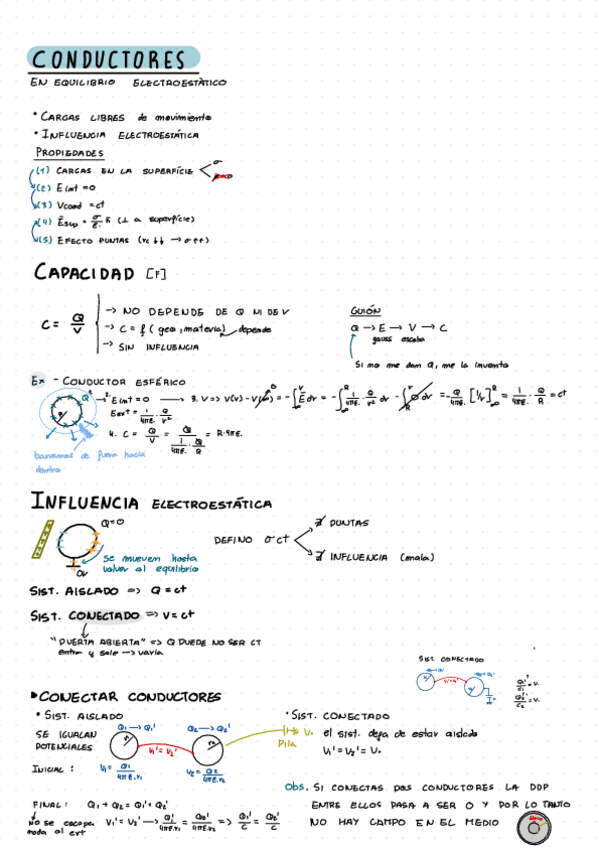 CONDUCTORES
EN EQUILIBRIO ELECTROESTÁTICO
• CARGAS LIBRES de movimiento
• INFLUENCIA ELECTROESTÁTICA
PROPIEDADES
(1) CARGAS EN LA SUPERFÍCIE σ
(2) Eint = 0
(3) Vcond = ct
(4) Esup = σ/ε. (⊥ a superfície)
(5) EFECTO PUNTAS (rc ↓↓ → σ ↑↑)
CAPACIDAD [F]
C = Q/V
→ NO DEPENDE DE Q NI DE V
→ C = f (geo, materia) depende
→ SIN INFLUENCIA
GUIÓN
Q → E → V → C
gauss escaba
Si no me dan Q, me la invento
Ex - CONDUCTOR ESFÉRICO
2. Eint = 0 → 3. V => V(r) - V(∞) = -∫ E dr = -∫ 1/4πε. · Q/r² dr - ∫ 0 dr = -Q/4πε. [1/r] = 1/4πε. · Q/R = ct
Eext = 1/4πε. · Q/r²
4. C = Q/V = Q / (1/4πε. · Q/R) = R·4πε.
barremos de fuera hacia
dentro
INFLUENCIA ELECTROESTÁTICA
Q=0
0V
se mueven hasta
volver al equilibrio
DEFINO σ ct
∄ PUNTAS
∄ INFLUENCIA (mala)
SIST. AISLADO => Q = ct
SIST. CONECTADO => V = ct
"PUERTA ABIERTA" => Q PUEDE NO SER CT
entra y sale → varía
SIST. CONECTADO
▸CONECTAR CONDUCTORES
• SIST. AISLADO
SE IGUALAN
POTENCIALES
Q1 → Q1'
Q2 → Q2'
V1' = V2'
V.
Pila
INICIAL :
V1 = Q1/4πε.r1
V2 = Q2/4πε.r2
FINAL : Q1 + Q2 = Q1' + Q2'
NO se escapa
nada al ext
V1' = V2' → Q1'/4πε.r1 = Q2'/4πε.r2 => Q1'/C = Q2'/C
• SIST. CONECTADO
el sist. deja de estar aislado
V1' = V2' = V.
Obs. SI CONECTAS DOS CONDUCTORES LA DDP
ENTRE ELLOS PASA A SER 0 Y POR LO TANTO
NO HAY CAMPO EN EL MEDIO